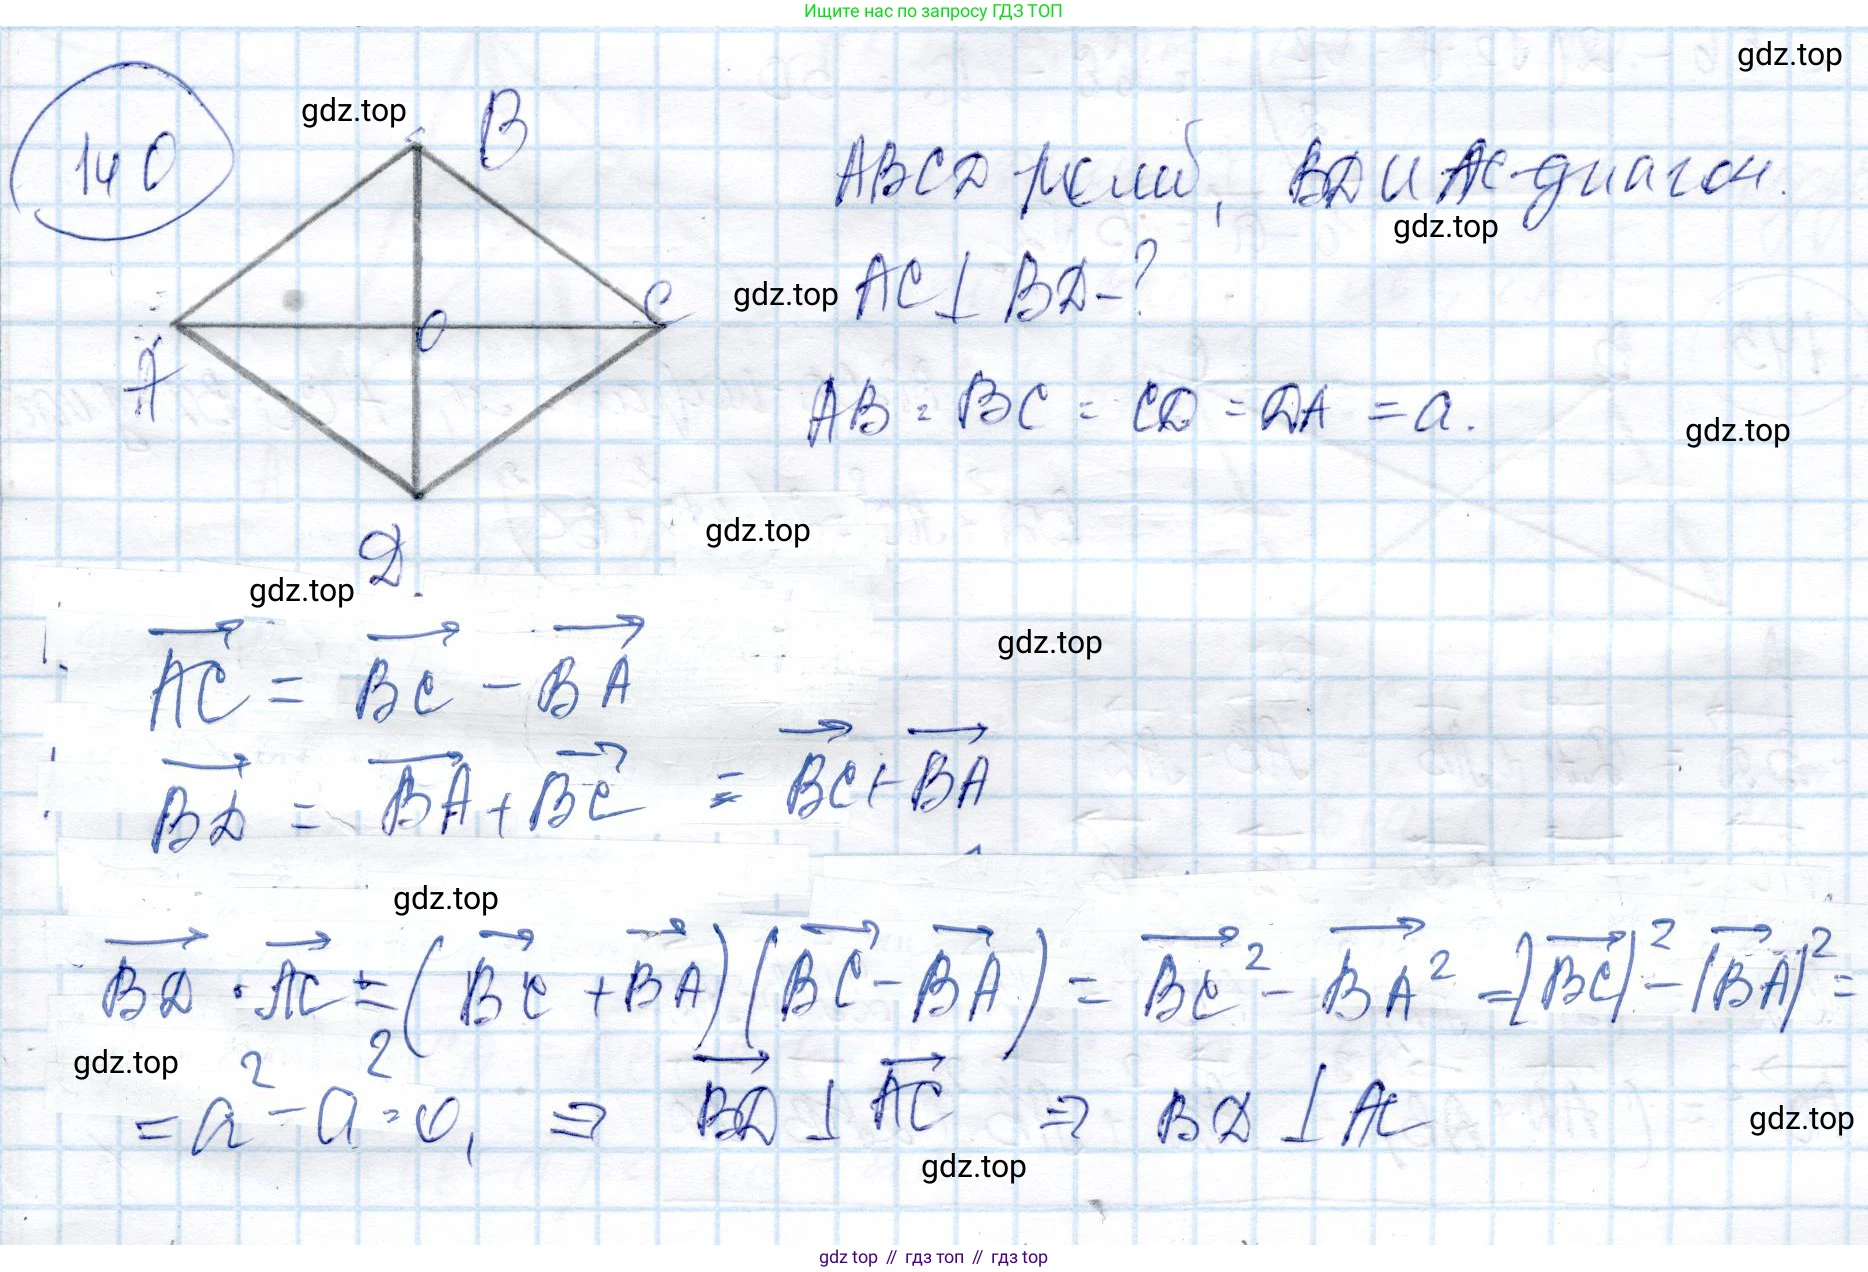 Ищите нас по запросу ГДЗ ТОП
gdz.top
140
gdz.top
B
ABCD ромб, BD и AC - диагон.
gdz.top
AC ⊥ BD - ?
gdz.top
C
O
A
AB = BC = CD = DA = a.
gdz.top
gdz.top
D
gdz.top
gdz.top
1. \vec{AC} = \vec{BC} - \vec{BA}
\vec{BD} = \vec{BA} + \vec{BC} = \vec{BC} + \vec{BA}
gdz.top
\vec{BD} · \vec{AC} = (\vec{BC} + \vec{BA})(\vec{BC} - \vec{BA}) = \vec{BC}² - \vec{BA}² = |\vec{BC}|² - |\vec{BA}|² =
gdz.top
= a² - a² = 0, ⇒ \vec{BD} ⊥ \vec{AC} ⇒ BD ⊥ AC
gdz.top
gdz.top
gdz top // гдз топ // гдз top